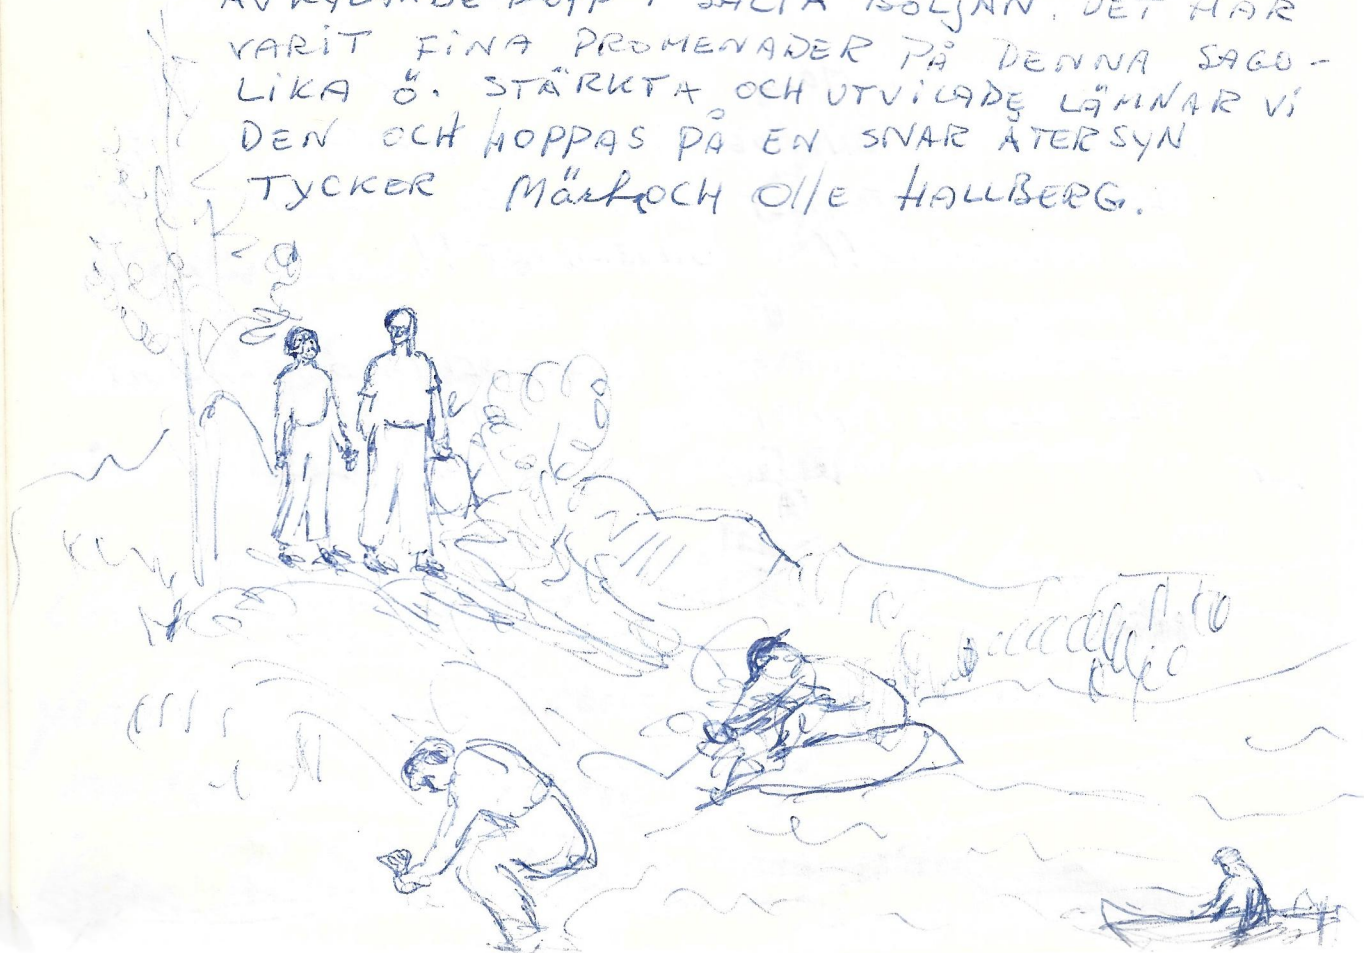 AVKYLANDE DOPP I SALTA BÖLJAN. DET HAR
VARIT FINA PROMENADER PÅ DENNA SAGO-
LIKA Ö. STÄRKTA OCH UTVILADE LÄMNAR VI
DEN OCH HOPPAS PÅ EN SNAR ÅTERSYN
TYCKER Märta OCH Olle HALLBERG.